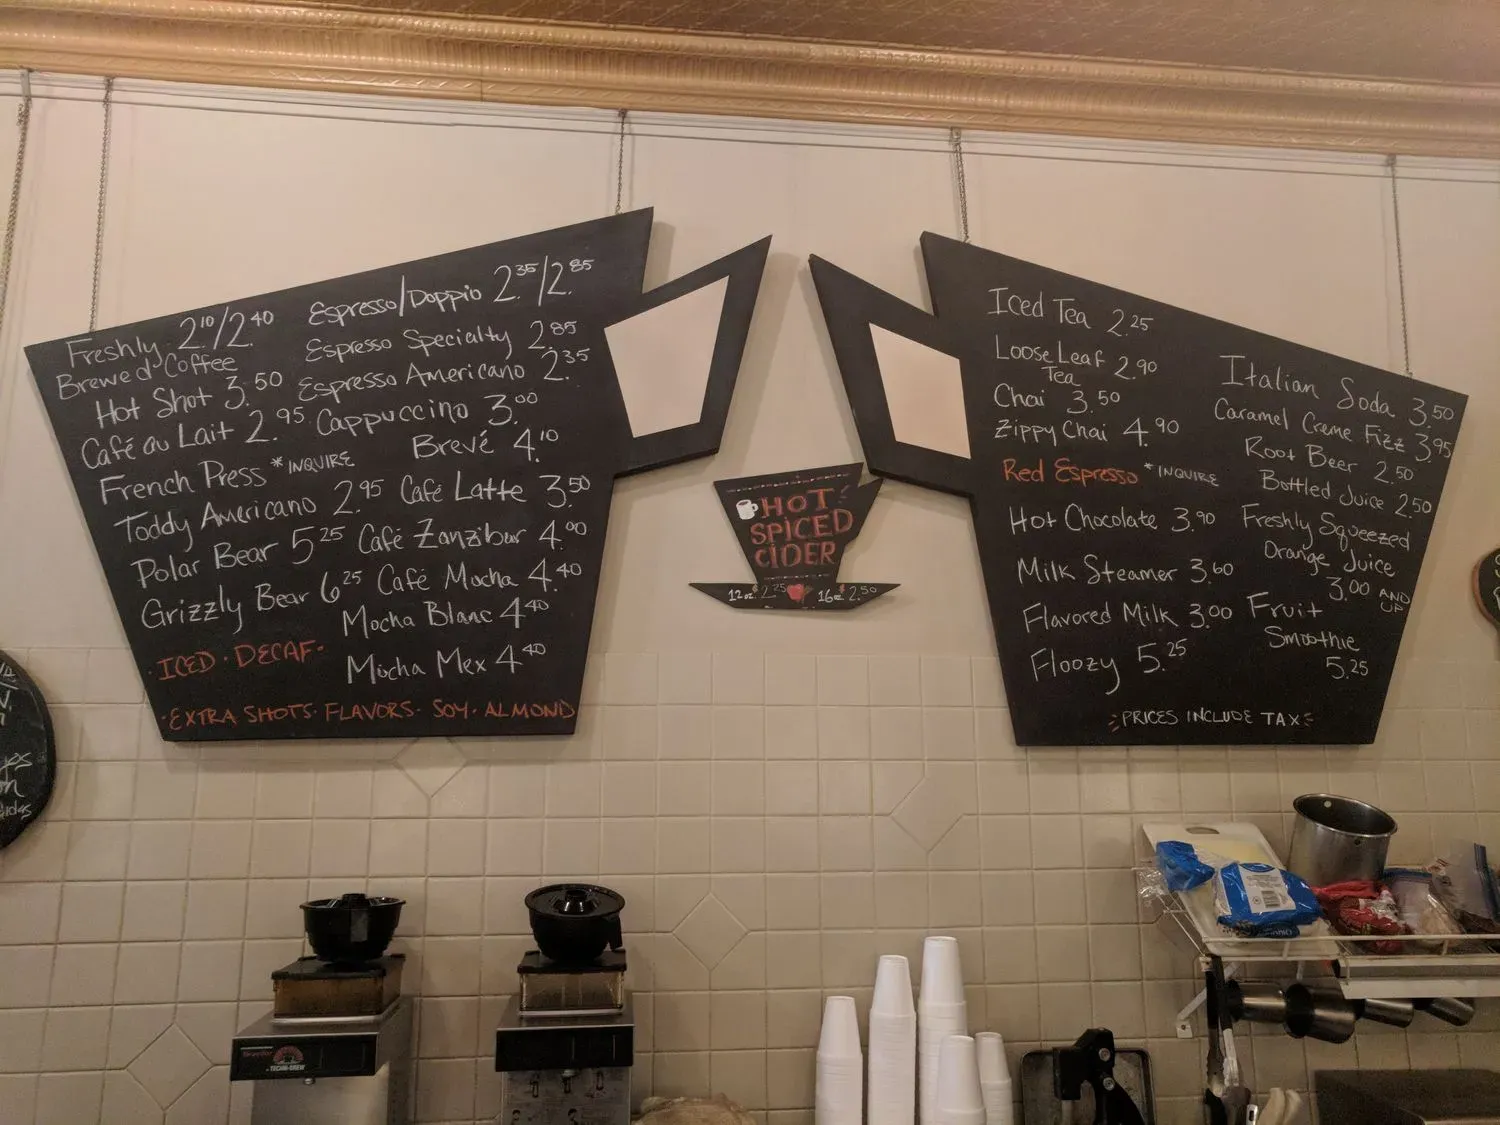 Freshly 2.10/2.40
Brewed Coffee
Hot Shot 3.50
Café au Lait 2.95
French Press *INQUIRE
Toddy Americano 2.95
Polar Bear 5.25
Grizzly Bear 6.25
·ICED·DECAF·
Espresso/Doppio 2.35/2.85
Espresso Specialty 2.85
Espresso Americano 2.35
Cappuccino 3.00
Brevé 4.10
Café Latte 3.50
Café Zanzibar 4.00
Café Mocha 4.40
Mocha Blanc 4.40
Mocha Mex 4.40
·EXTRA SHOTS·FLAVORS·SOY·ALMOND
HOT
SPICED
CIDER
12oz. $2.25 16oz $2.50
Iced Tea 2.25
Loose Leaf 2.90
Tea
Chai 3.50
Zippy Chai 4.90
Red Espresso *INQUIRE
Hot Chocolate 3.90
Milk Steamer 3.60
Flavored Milk 3.00
Floozy 5.25
Italian Soda 3.50
Caramel Creme Fizz 3.95
Root Beer 2.50
Bottled Juice 2.50
Freshly Squeezed
Orange Juice
3.00 AND
UP
Fruit
Smoothie
5.25
PRICES INCLUDE TAX
TECHNI-BREW